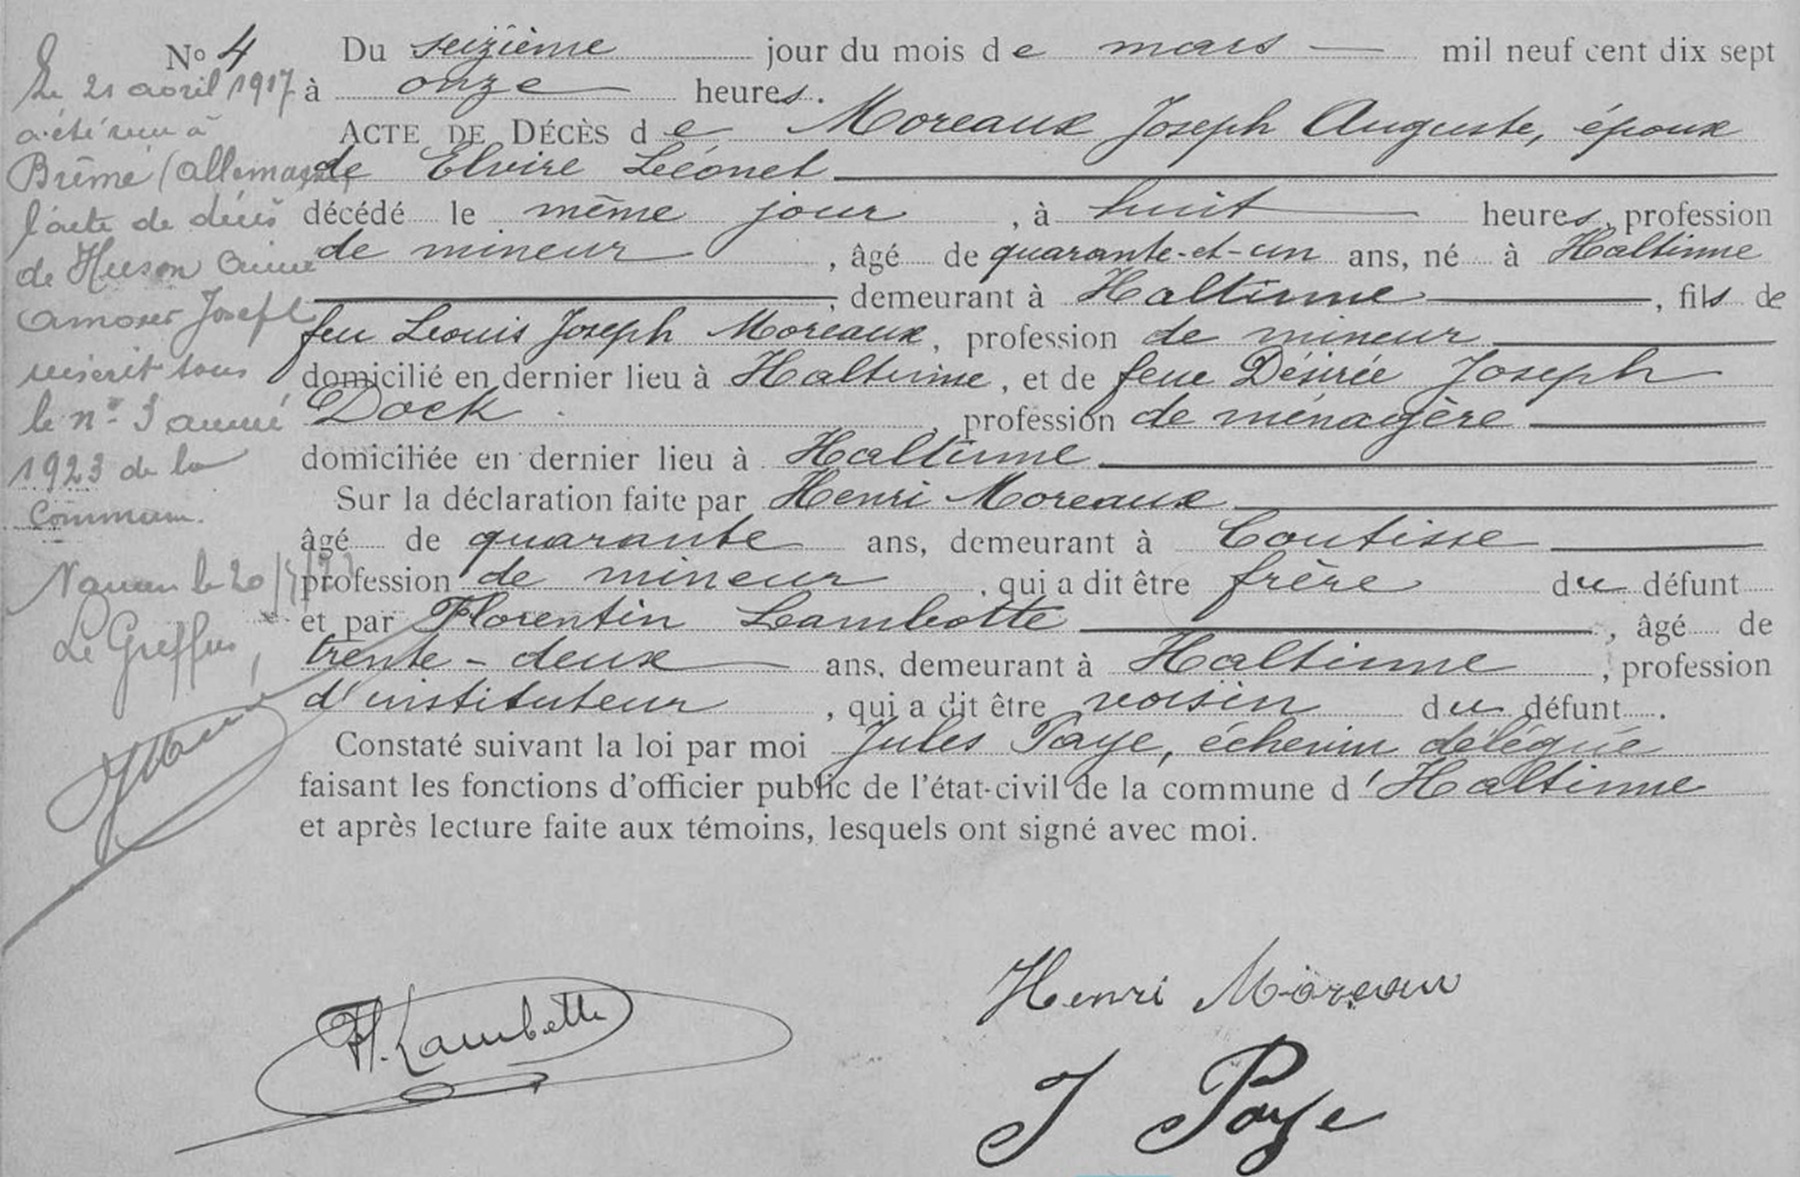 No 4
Le 21 avril 1917
a été reçu à
Brême (allemagne)
l'acte de décès
de Huson
Joseph
inscrit sous
le n° 3 année
1923 de la
Commune.
Namur le 20
Le Greffier,
Du seizième jour du mois de mars mil neuf cent dix sept
à onze heures.
ACTE DE DÉCÈS de Moreaux Joseph Auguste, époux
de Elvire Léonet
décédé le même jour, à huit heures, profession
de mineur, âgé de quarante-et-un ans, né à Haltinne
, demeurant à Haltinne, fils de
feu Louis Joseph Moreaux, profession de mineur
domicilié en dernier lieu à Haltinne, et de feue Désirée Joseph
Dock, profession de ménagère
domiciliée en dernier lieu à Haltinne
Sur la déclaration faite par Henri Moreaux
âgé de quarante ans, demeurant à Coutisse
profession de mineur, qui a dit être frère du défunt
et par Florentin Lambotte, âgé de
trente-deux ans, demeurant à Haltinne, profession
d'instituteur, qui a dit être voisin du défunt.
Constaté suivant la loi par moi Jules Paye, échevin délégué
faisant les fonctions d'officier public de l'état-civil de la commune d'Haltinne
et après lecture faite aux témoins, lesquels ont signé avec moi.
Henri Moreaux
Fl. Lambotte
J Paye